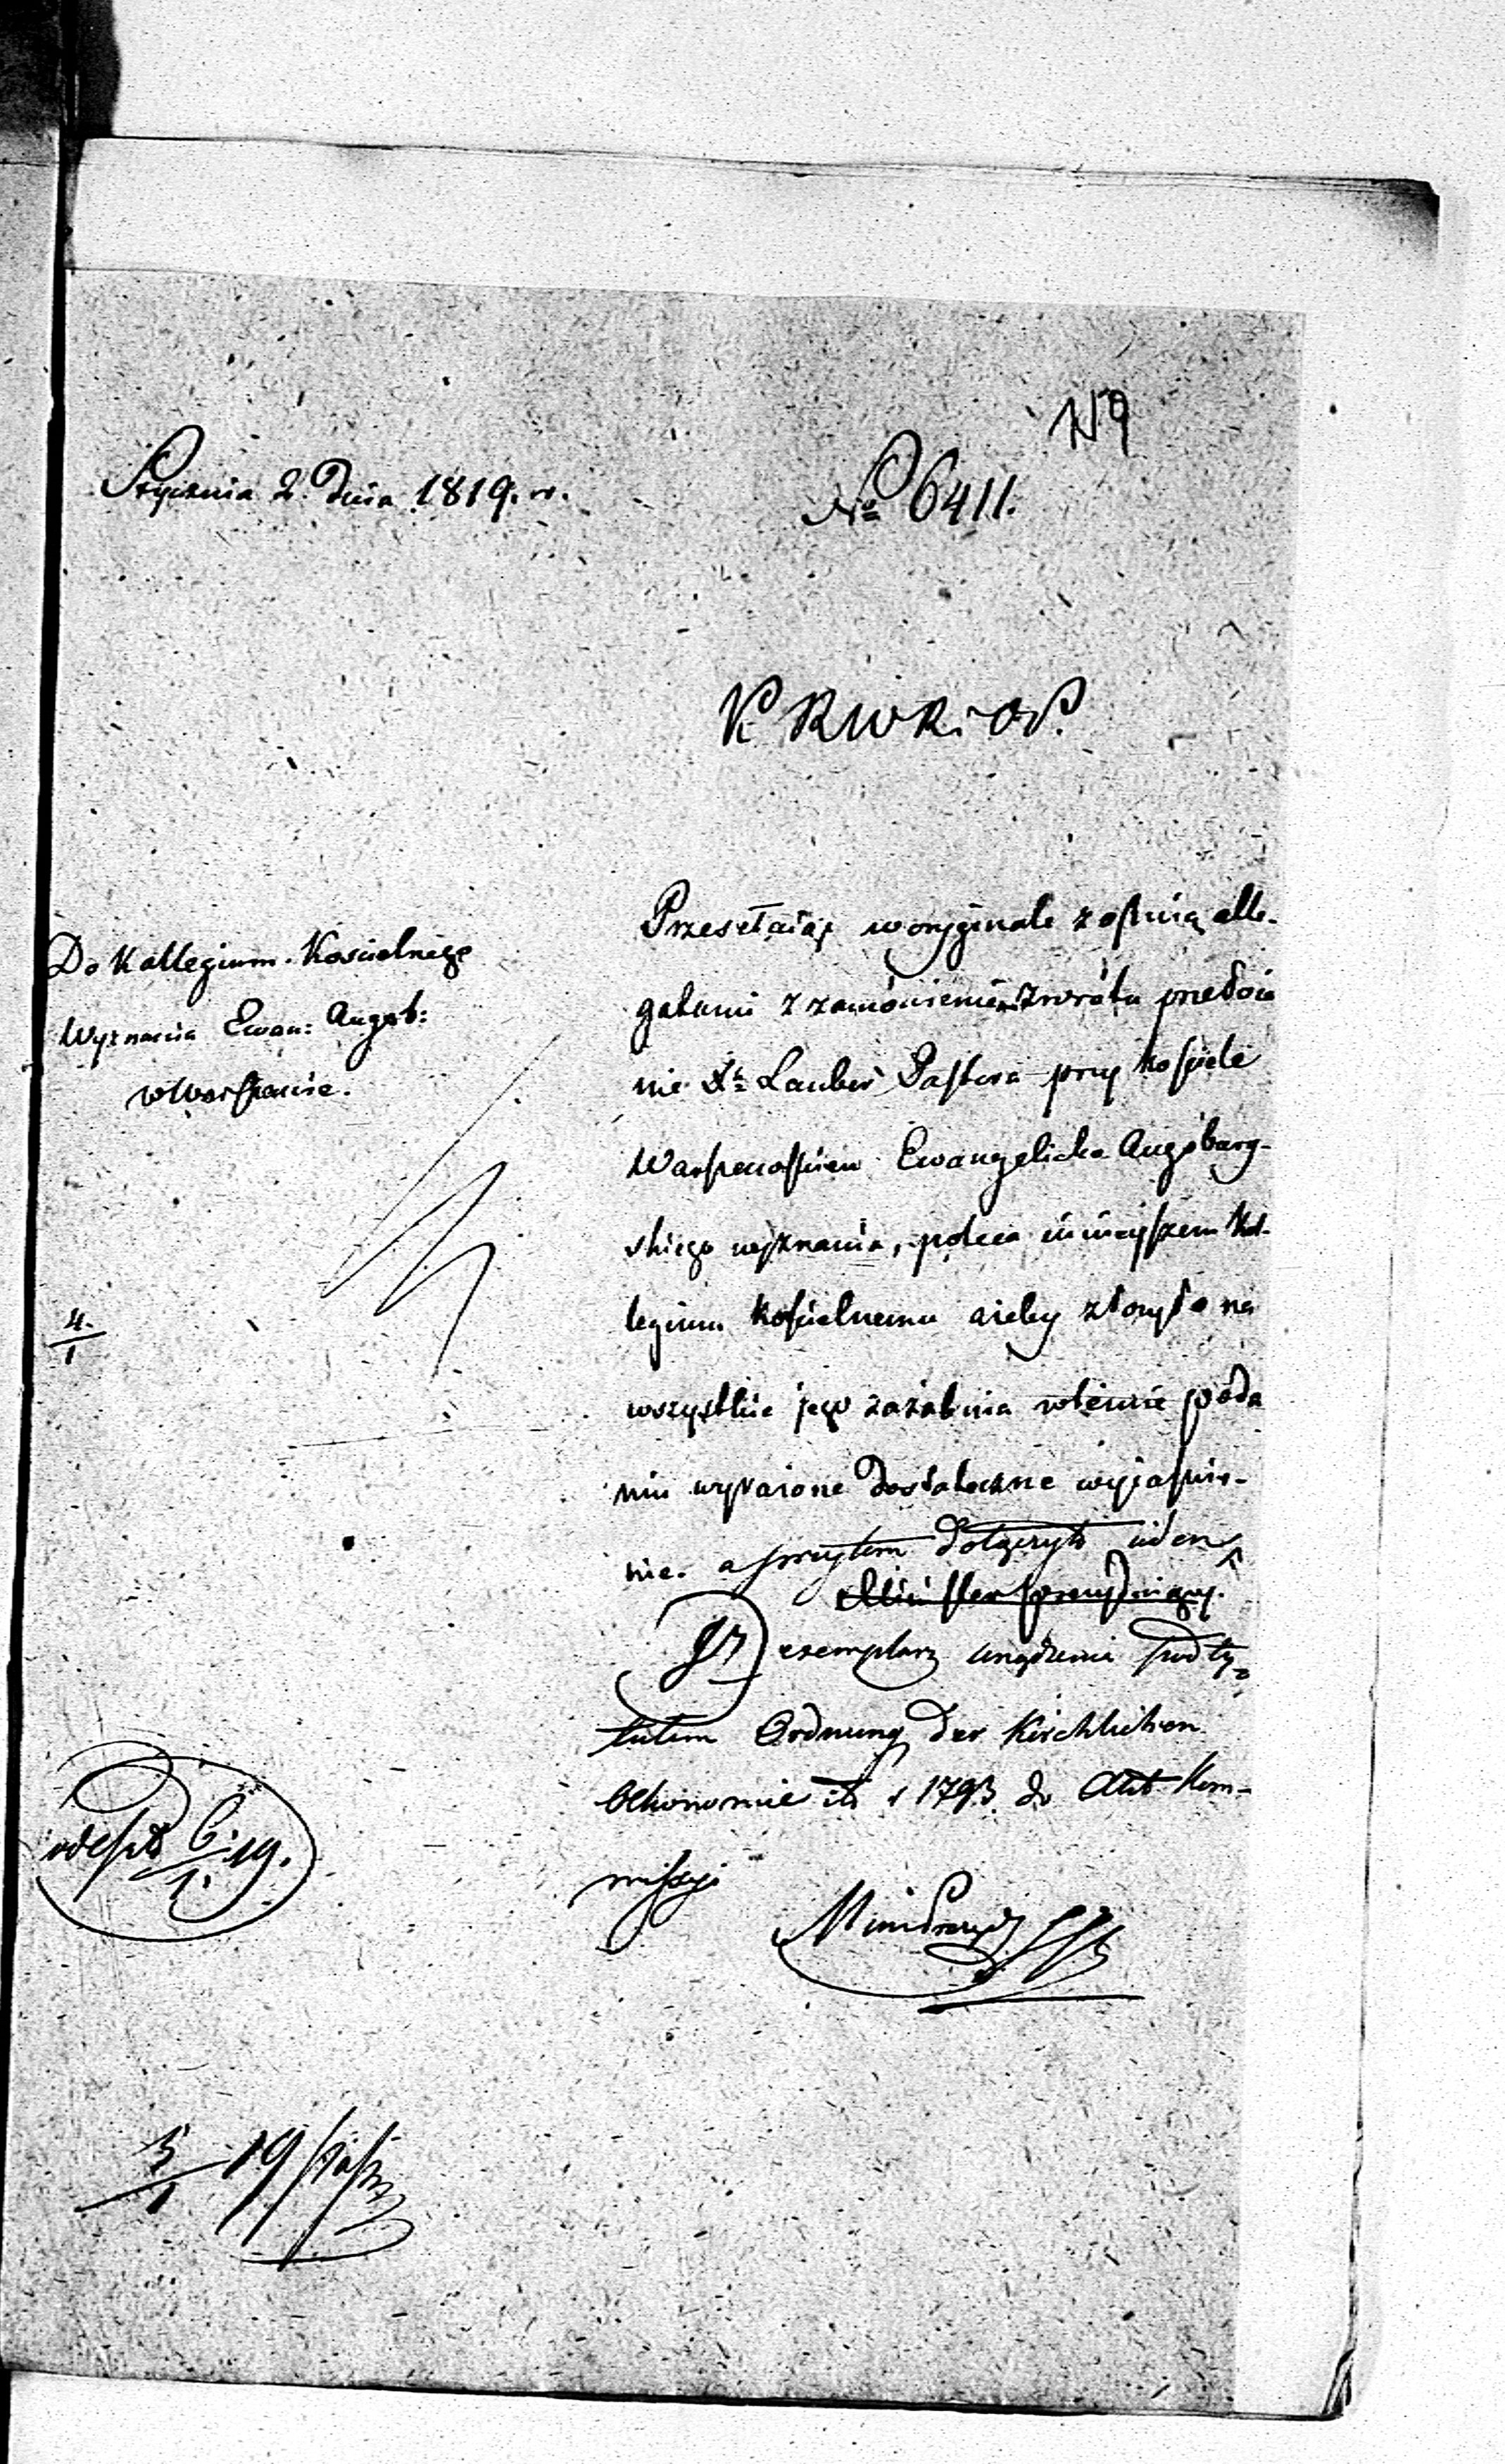 N 9
Stycznia 2. Dnia 1819. r.
No 6411.
K. R. W. R. i O. P.
Do Kollegium Kościelnego
Wyznania Ewan: Augsb:
w Warszawie.
Przesełaiąc w oryginale z ośmią alle-
gatami z zamówieniem zwrótu przełoże
nie Xa Lauber Pastora przy kościele
Warszawskim Ewangelicko Augsburg-
skiego wyznania, poleca ninieyszem Kol-
legium kościelnemu ażeby złożyło na
wszystkie jego zażalenia w témże poda
niu wyrażone dostateczne wyiaśnie-
nie. a przytem dołączyło ieden
Minister prezyduiący.
exemplarz urządzenia pod ty-
tułem Ordnung der Kirchlichen
Oekonomie z r 1793 do Akt Kom-
missyi
Min Prezyd
4.
1
odesłt 6/1. 19.
5/1 19